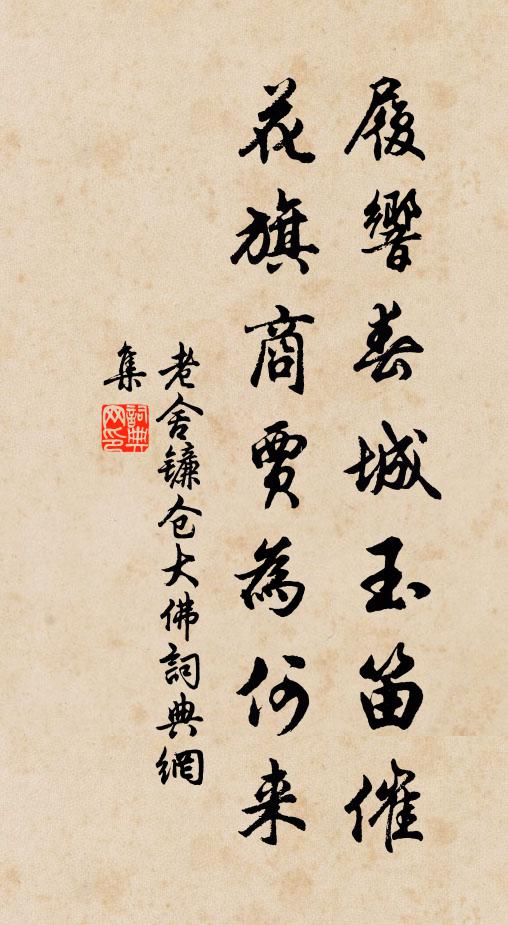 履響春城玉笛催
花旗商賈為何来
老舍镰仓大佛詞典網
集
詞典
网印